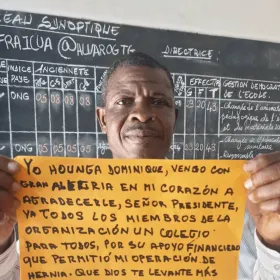 LEAU SYNOPTIQUE
FRAICUA@NUAROGTG
DIRECTRICE
INDICE
ANCIENNETÉ
EFFECTIF
GESTION
PAYE
G
F
T
DE L'ECOLE
ONG
05
03
03
03
23
20
43
ONG
05
03
08
03
23
20
43
YO HOUNGA DOMINIQUE, VENGO CON
GRAN ALEGRIA EN MI CORAZÓN A
AGRADECERLE, SEÑOR PRESIDENTE,
YA TODOS LOS MIEMBROS DE LA
ORGANIZACIÓN UN COLEGIO
PARA TODOS, POR SU APOYO FINANCIERO
QUE PERMITIÓ MI OPERACIÓN DE
HERNIA. QUE DIOS TE LEVANTE MÁS